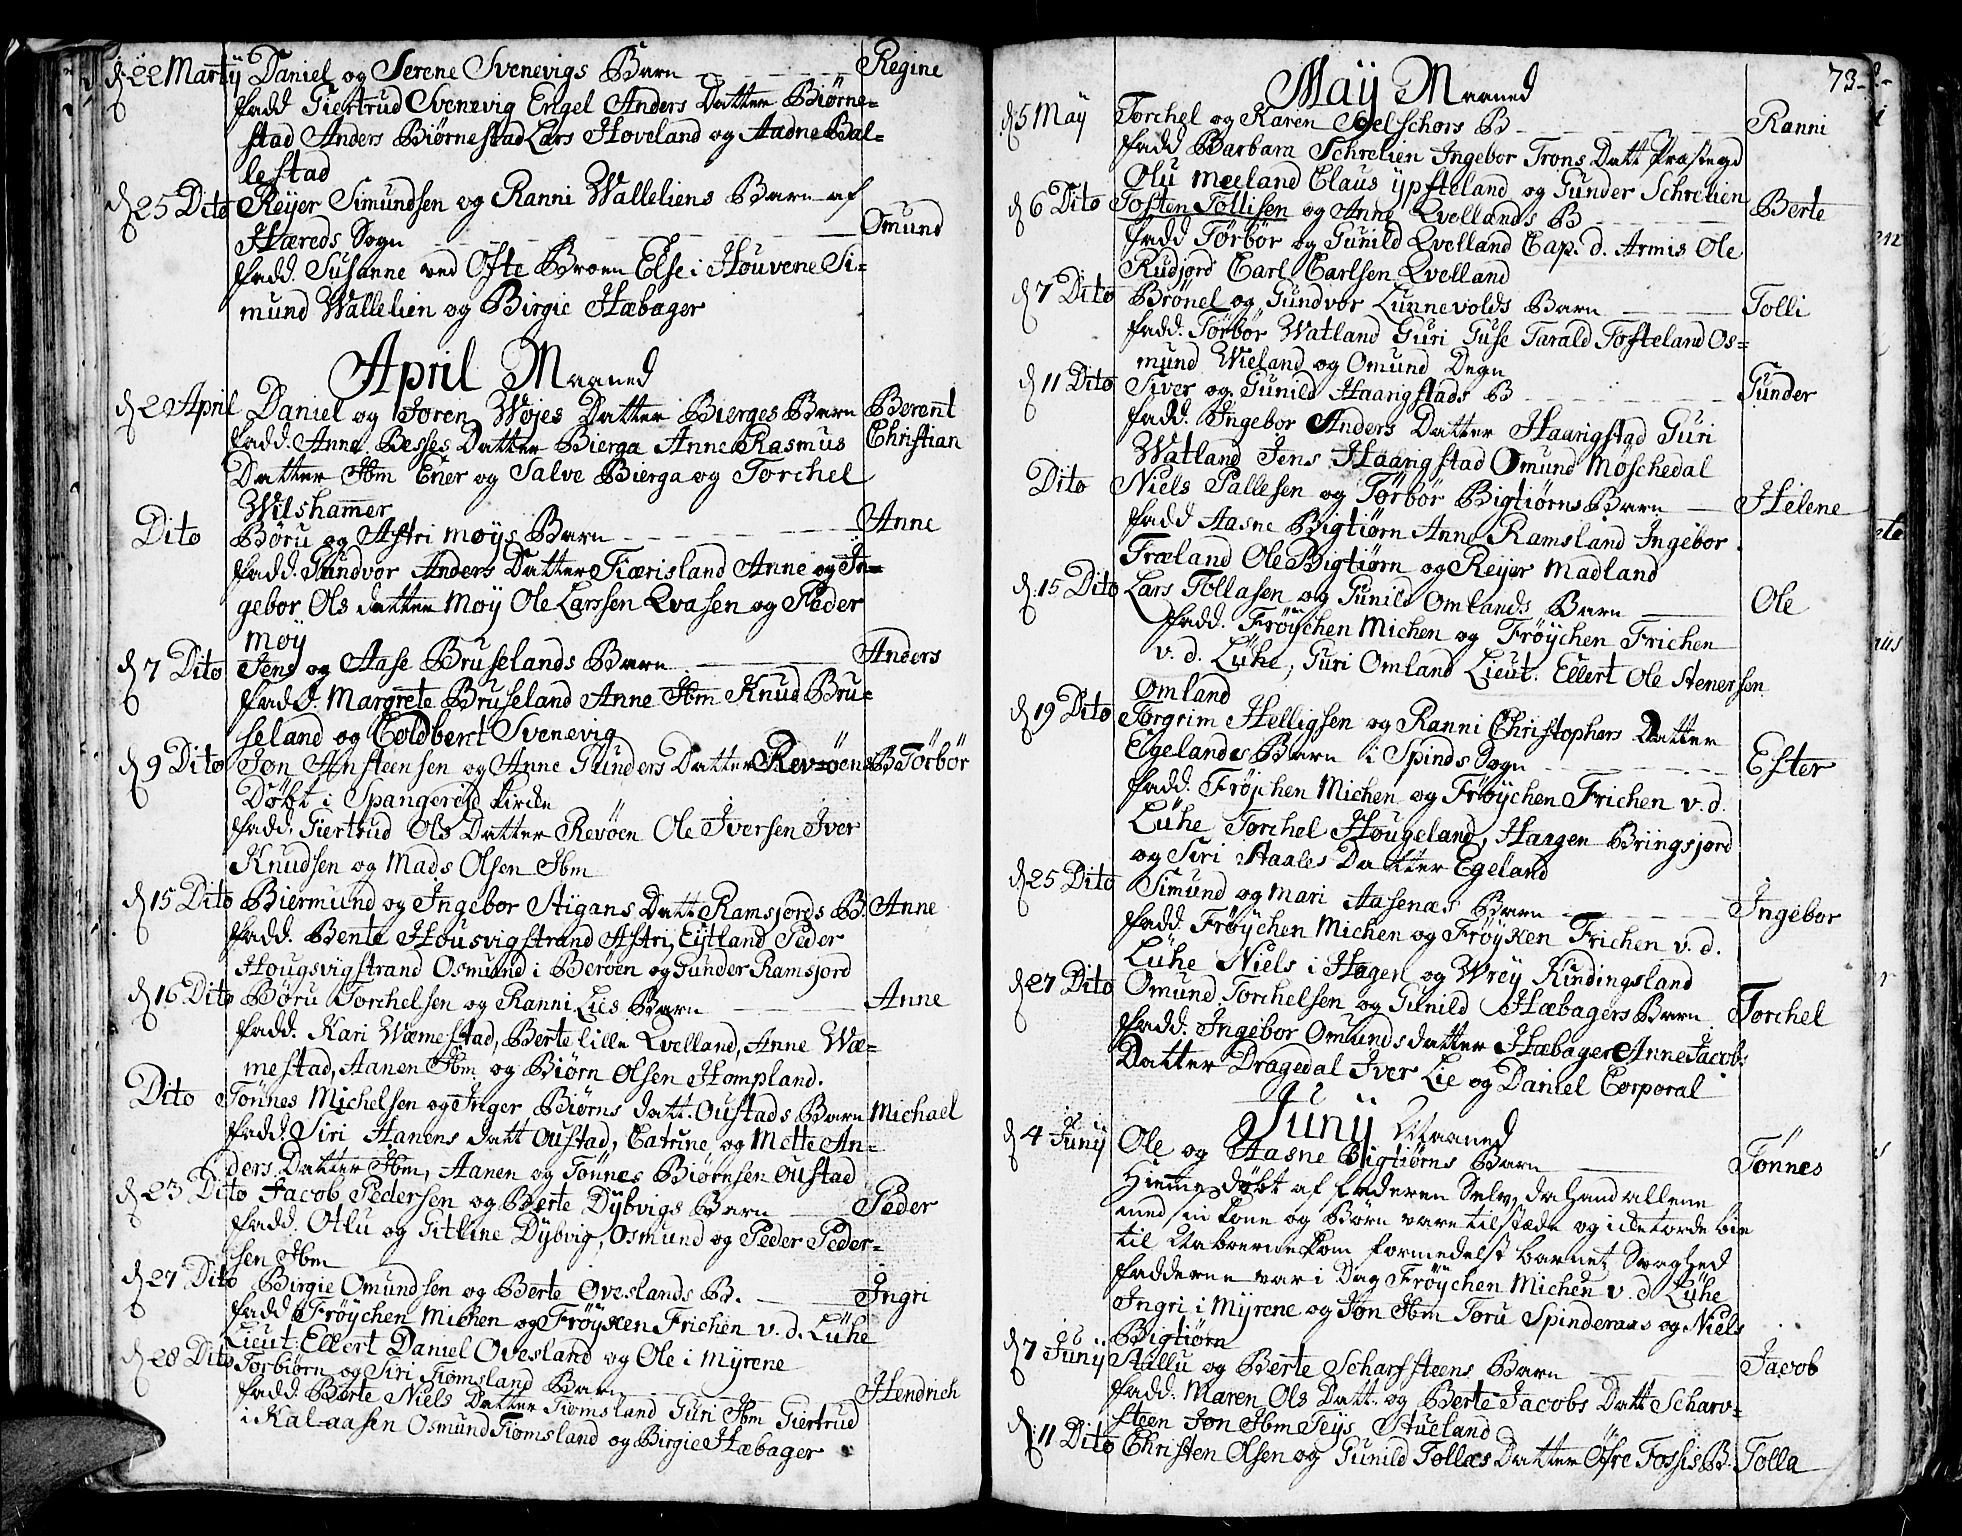 d. 22 Martij Daniel og Serene Svenevigs Barn Regine
fadd Giertrud Svenevig Engel Anders Datter Biørne=
stad Anders Biørnestad Lars Hoveland og Aadne Bal=
lestad
d. 25 Dito Reyer Simundsen og Ranni Walleliens Barn af
Hæreds Sogn Omund
fadd. Susanne ved Ofte Broen Else i Houvene Si=
mund Wallelien og Birgie Hæbager
April Maaned
d. 2 April Daniel og Joren Wøjes Datter Bierges Barn Berent
fadd. Anne Besses Datter Bierga Anne Rasmus Christian
Datter Ibm Ener og Salve Bierga og Torchel
Wilshamer
Dito Børu og Astri møys Barn Anne
fadd. Gundvor Anders Datter Fiærisland Anne og In=
gebor Ols datter Møy Ole Larssen Qvasen og Peder
møy
d. 7 Dito Jens og Aase Bruselands Barn Anders
fadd. Margrete Bruseland Anne Ibm Knud Bru=
seland og Coldbent Svenevig
d. 9 Dito Jon Ansteensen og Anne Gunders Datter Revøens B Tørbør
Døbt i Spangereid kirche
fadd. Giertrud Ols Datter Revøen Ole Iversen Iver
Knudsen og Mads Olsen Ibm
d. 15 Dito Biermund og Ingebor Stigans Datt Ramsjords B. Anne
fadd. Bente Housvigstrand Astri Eijtland Peder
Hougsvigstrand Osmund i Berøen og Gunder Ramsjord
d. 16 Dito Børu Torchelsen og Ranni Lies Barn Anne
fadd. Kari Wæmestad, Berte lille Qvelland, Anne Wæ=
mestad, Aanen Ibm og Biørn Olsen Hompland.
Dito Tønnes Michelsen og Inger Biørns datt. Oustads Barn Michael
fadd. Siri Aanens datt Oustad, Catrine og Mette An=
ders Datter Ibm, Aanen og Tønnes Biørnsen Oustad
d. 23 Dito Jacob Pedersen og Berte Dybvigs Barn Peder
fadd. Otlu og Gitline Dybvig, Osmund og Peder Peder=
sen Ibm
d. 27 Dito Birgie Omundsen og Berte Oveslands B. Ingri
fadd Frøychen Michen og Frøyken Frichen v. d. Lühe
Lieut. Ellert Daniel Ovesland og Ole i Myrene
d. 28 Dito Torbiørn og Siri Tiomsland Barn Hendrich
fadd. Berte Niels Datter Tiomsland Guri Ibm Giertrud
i Kalaasen Osmund Tiomsland og Birgie Hæbager
73
Maÿ Maaned
d. 5 Maÿ Torchel og Karen Soelschørs B Ranni
fadd Barbara Schrelien Ingebor Trons Datt Præstegd
Olu meeland Claus ypsteland og Gunder Schrelien
d. 6 Dito Tosten Tollisen og Anne Qvellands B Berte
fadd Tørbør og Gunild Qvelland Cap. d. Armis Ole
Rudjord Carl Carlsen Qvelland
d. 7 Dito Brønel og Gundvor Lunnevolds Barn Tolli
fadd. Tørbør Watland Guri Tuse Tarald Tosteland Os=
mund Wieland og Omund Degn
d. 11 Dito Siver og Gunild Haarigstads B Gunder
fadd. Ingebor Anders Datter Haarigstad Guri
Watland Jens Haarigstad Omund Møschedal
Dito Niels Pallesen og Tørbør Bigtiørns Barn Helene
fadd Aasne Bigtiørn Anne Ramsland Ingebor
Træland Ole Bigtiørn og Reyer Madland
d. 15 Dito Lars Tollasen og Gunild Omlands Barn Ole
fadd. Frøychen Michen og Frøychen Frichen
v. d. Lühe, Guri Omland Lieut. Ellert Ole Stenersen
Omland
d. 19 Dito Torgrim Helligsen og Ranni Christophers Datter
Egelands Barn i Spinds Sogn Ester
fadd. Frøjchen Michen og Frøychen Frichen v. d.
Lühe Torchel Hougeland, Haagen Bringsjord
og Siri Staales Datter Egeland
d. 25 Dito Simund og Mari Aasenæs Barn Ingebor
fadd. Frøychen Michen og Frøyken Frichen v. d.
Lühe Niels i Hagen og Wrey Kindingsland
d. 27 Dito Omund Torchelsen og Gunild Hæbagers Barn Torchel
fadd. Ingebor Omunds datter Hæbager Anne Jacobs
Datter Dragedal Iver Lie og Daniel Corporal
Junij Maaned
d. 4 Junij Ole og Aasne Bigtiørns Barn Tønnes
Hieme døbt af faderen Selv, da hand allene
med sin kone og Børn vare tilstæde og icke torde bie
til Naboerne kom formedelst barnets Svaghed
fadderne var i Dag Frøychen Michen v. d Lühe
Ingri i Myrene og Jon Ibm Toru Spinderaas og Niels
Bigtiørn
d. 7 Junij Stallu og Berte Scharfsteens Barn Jacob
fadd. Maren Ols Datt. og Berte Jacobs Datt Scharv=
steen Jon Ibm Teys Stueland
d. 11 Dito Christen Olsen og Gunild Tollæs Datter Øfre Fossis B. Tolla